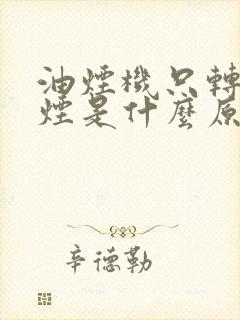 油煙機只轉
煙是什麼原
辛德勒